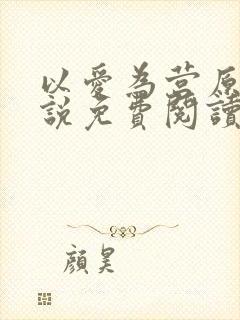 以愛為營原
說免費閱讀
顏昊